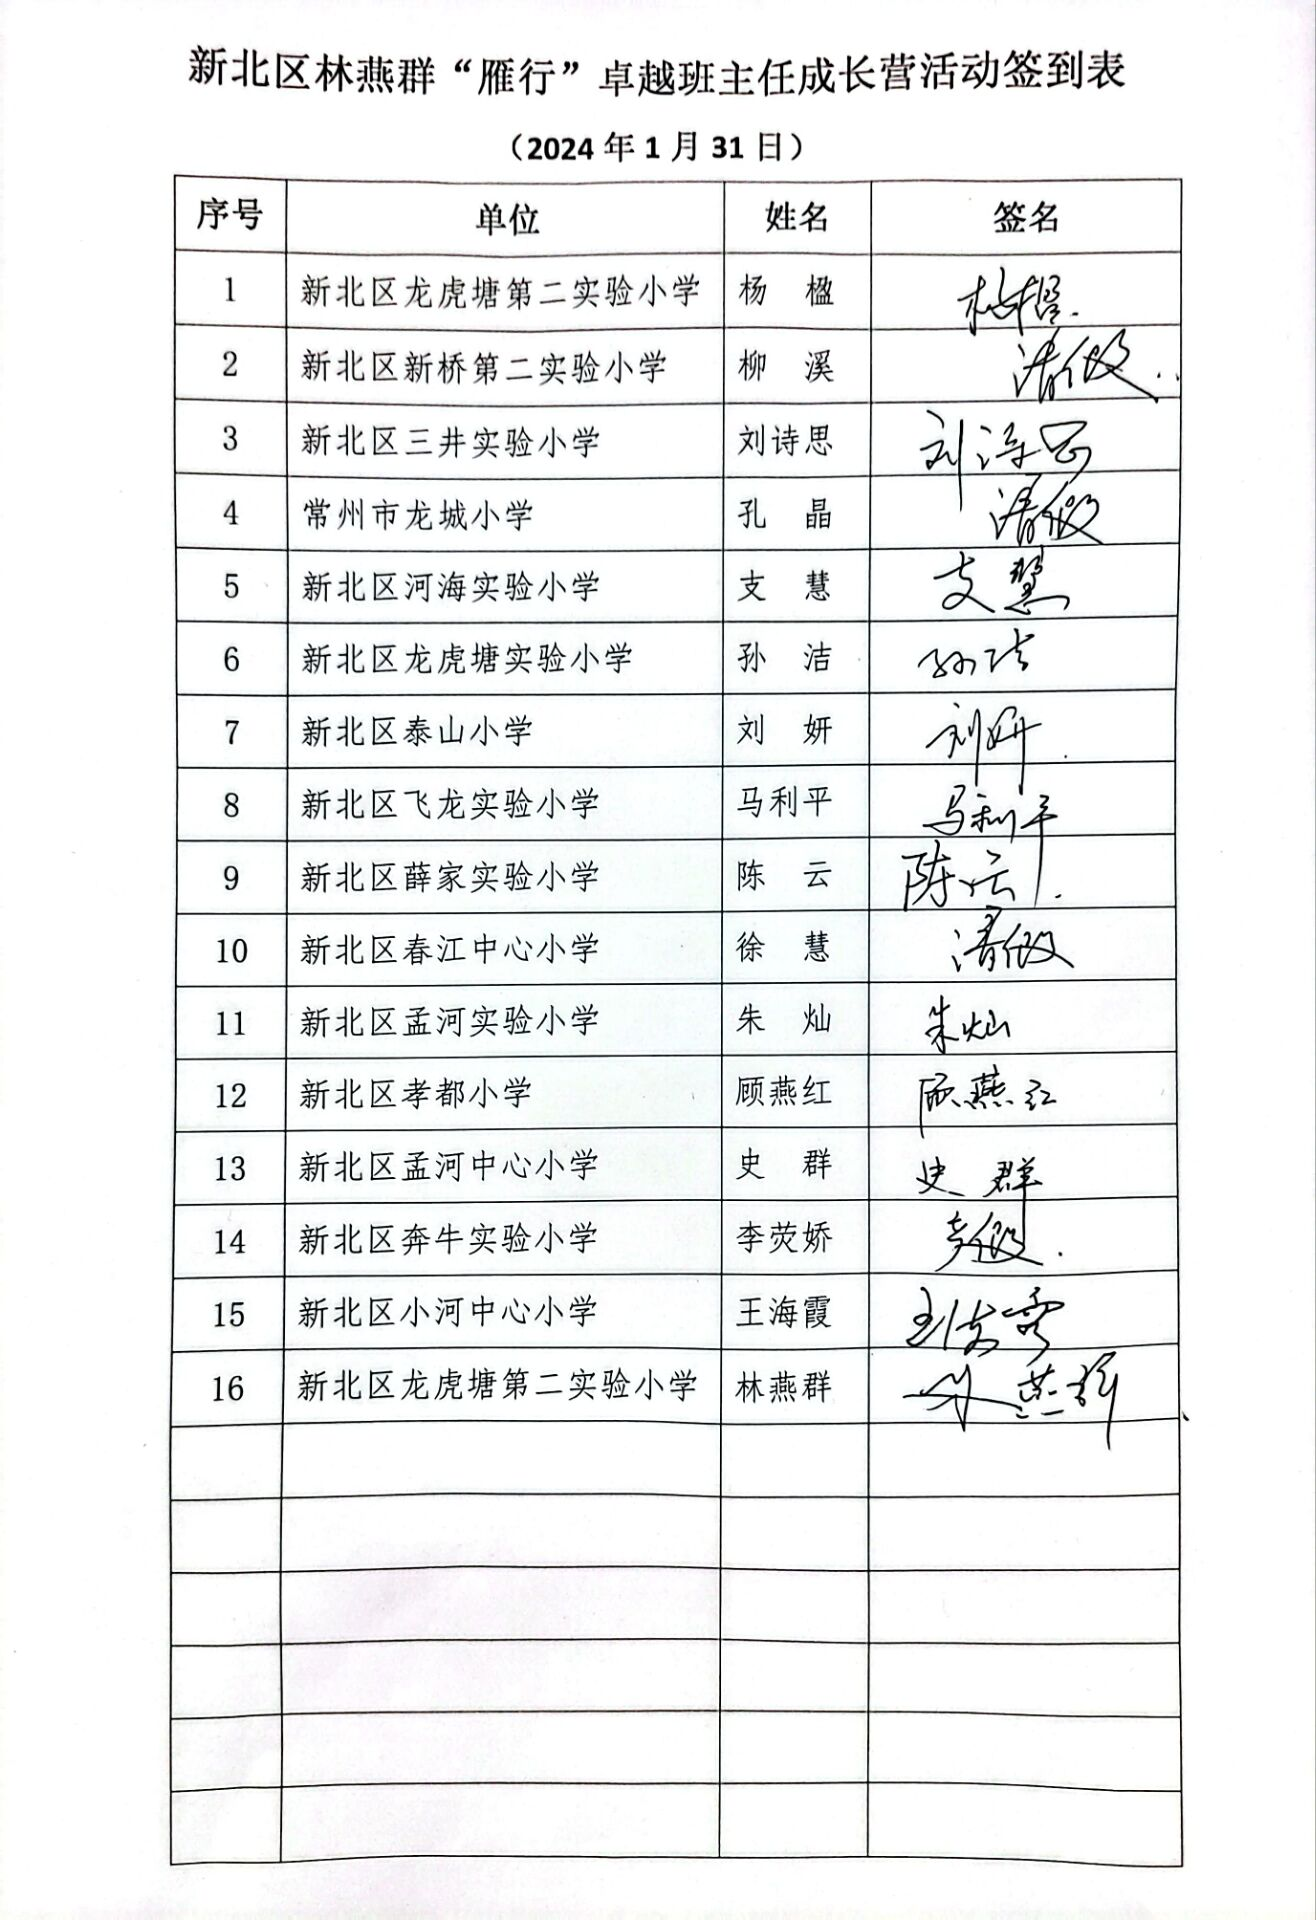 新北区林燕群“雁行”卓越班主任成长营活动签到表
（2024 年 1 月 31 日）
序号 单位 姓名 签名
1 新北区龙虎塘第二实验小学 杨 楹 杨楹.
2 新北区新桥第二实验小学 柳 溪 请假.
3 新北区三井实验小学 刘诗思 刘诗思
4 常州市龙城小学 孔 晶 请假
5 新北区河海实验小学 支 慧 支慧
6 新北区龙虎塘实验小学 孙 洁 孙洁
7 新北区泰山小学 刘 妍 刘妍.
8 新北区飞龙实验小学 马利平 马利平
9 新北区薛家实验小学 陈 云 陈云.
10 新北区春江中心小学 徐 慧 请假
11 新北区孟河实验小学 朱 灿 朱灿
12 新北区孝都小学 顾燕红 顾燕红
13 新北区孟河中心小学 史 群 史群
14 新北区奔牛实验小学 李荧娇 产假.
15 新北区小河中心小学 王海霞 王海霞
16 新北区龙虎塘第二实验小学 林燕群 林燕群